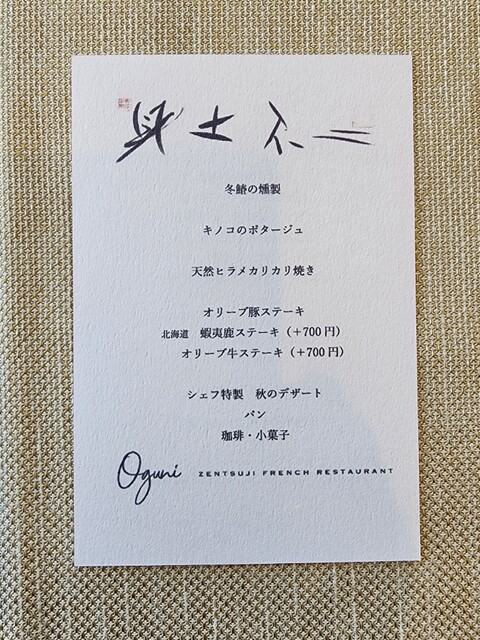 身土不二
冬鰆の燻製
キノコのポタージュ
天然ヒラメカリカリ焼き
オリーブ豚ステーキ
北海道　蝦夷鹿ステーキ（+700円）
オリーブ牛ステーキ（+700円）
シェフ特製　秋のデザート
パン
珈琲・小菓子
Oguni ZENTSUJI FRENCH RESTAURANT